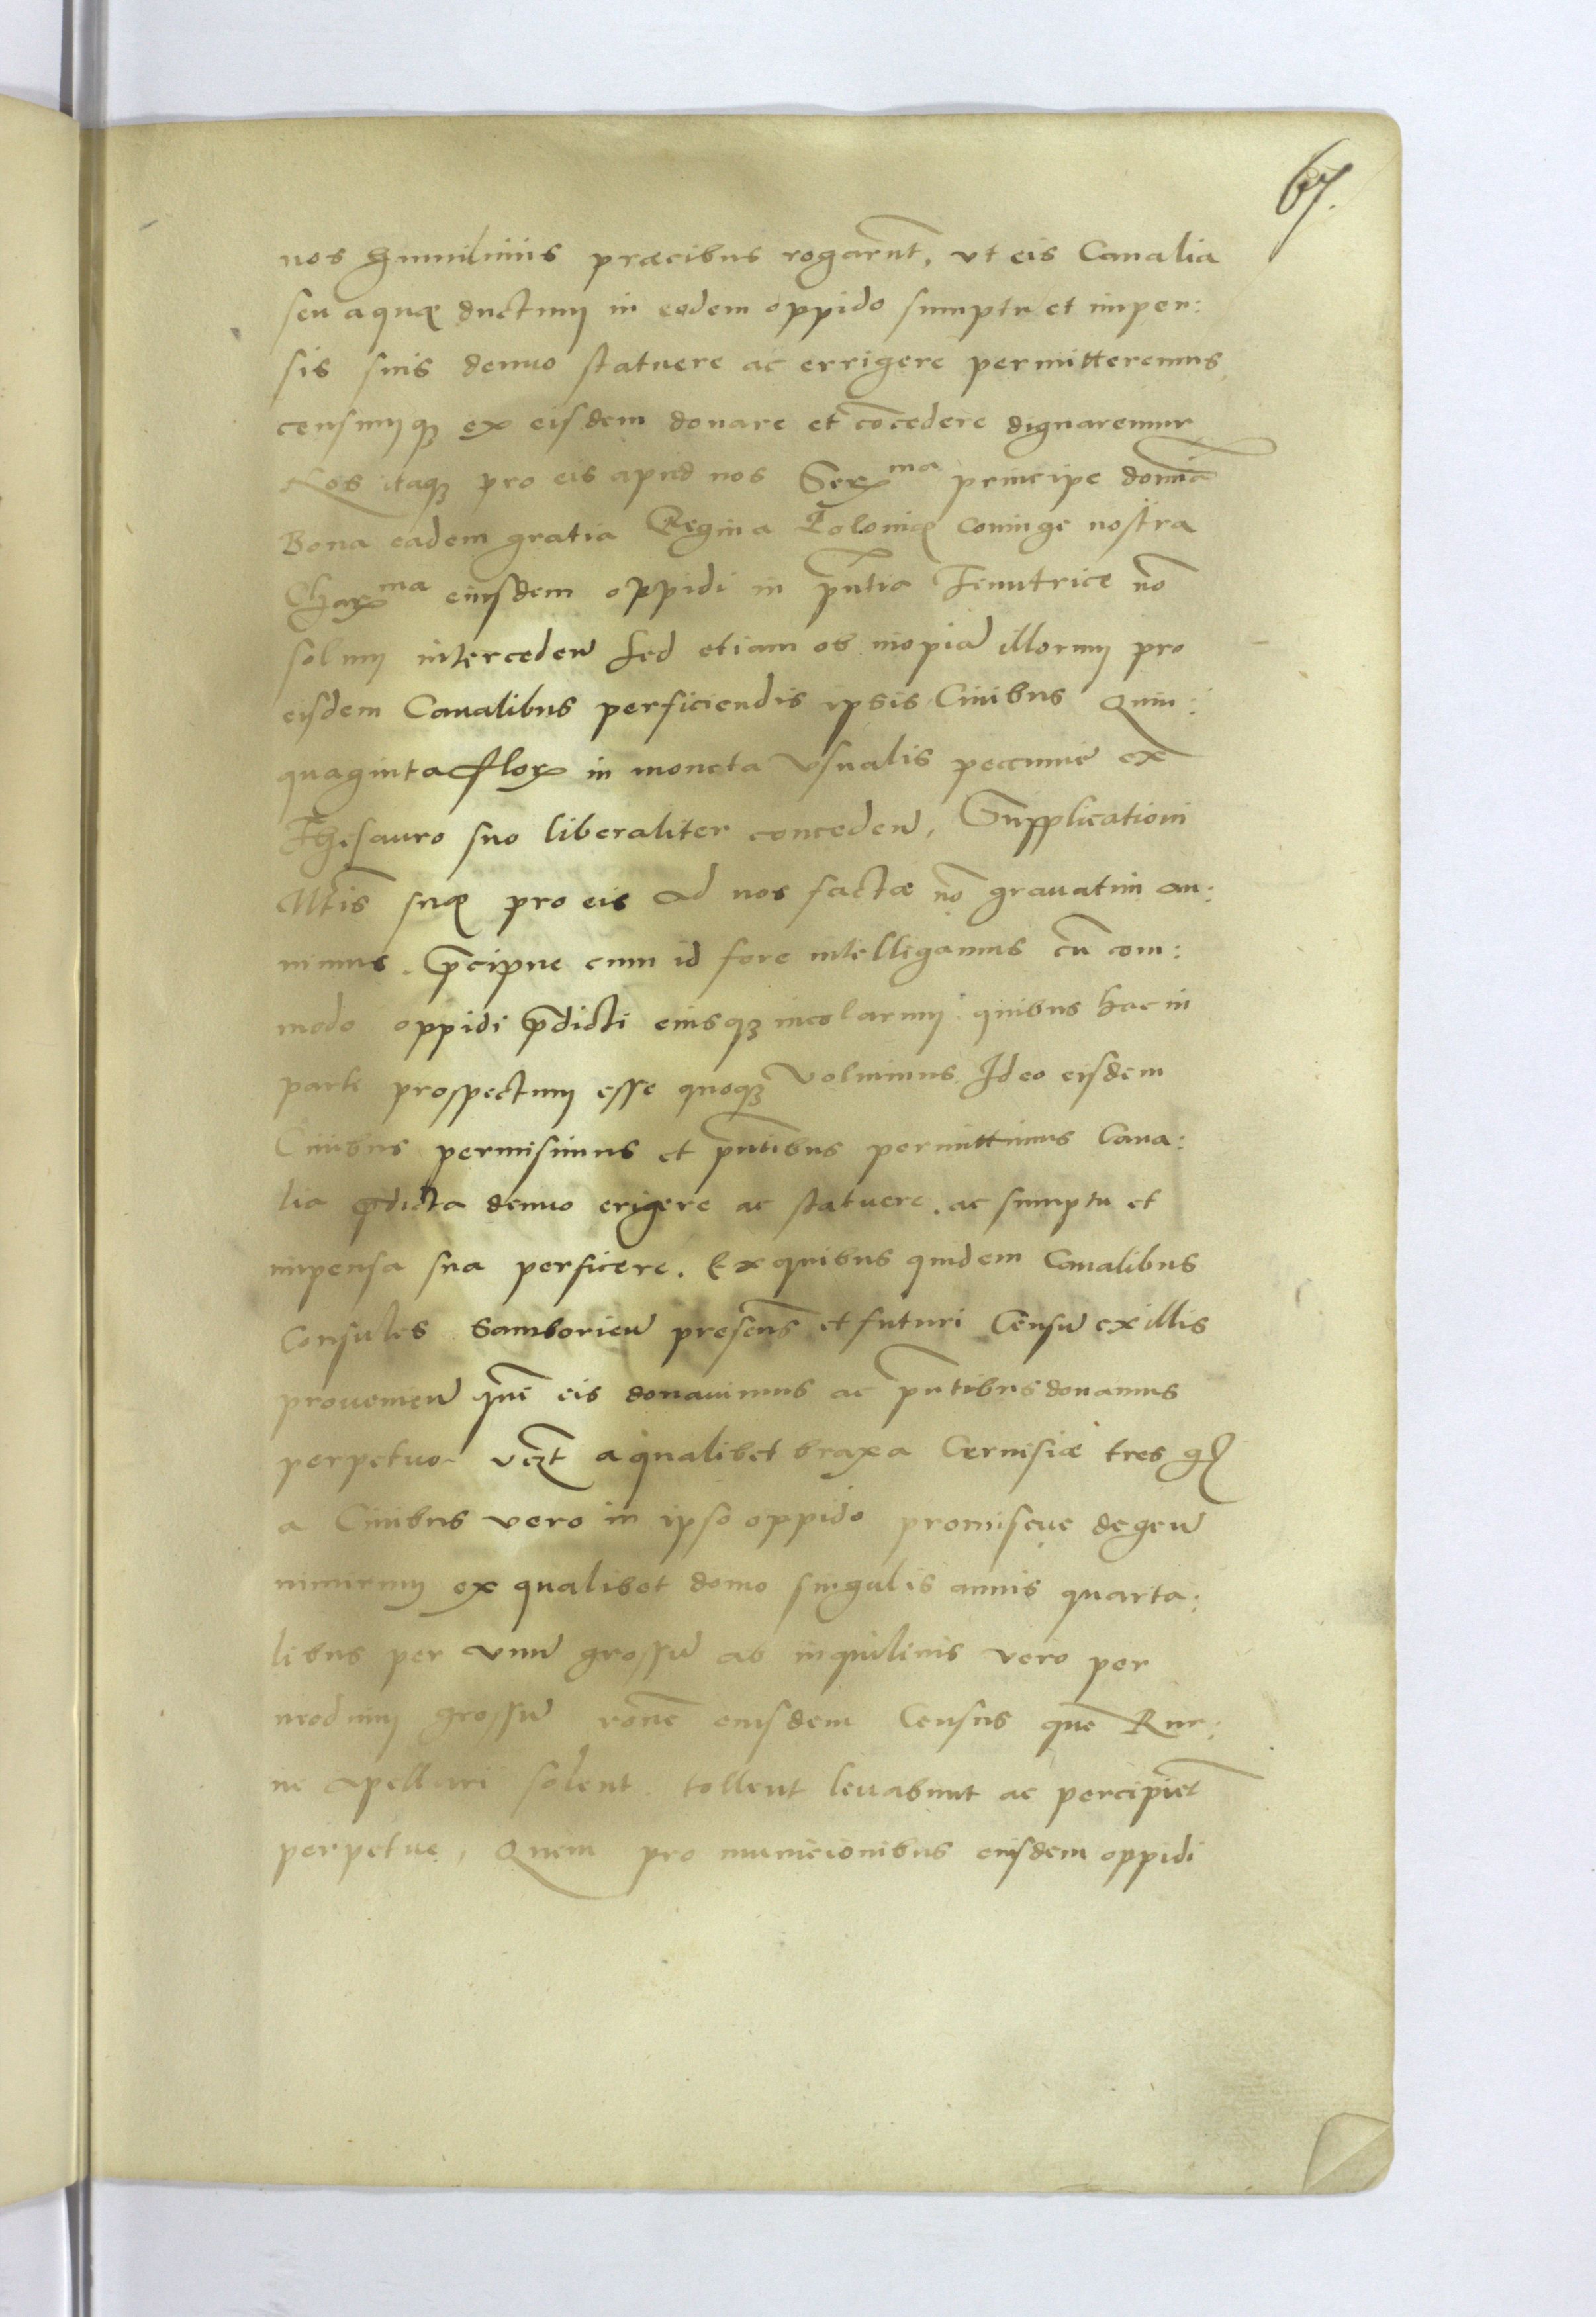 67.
nos humilimis præcibus rogarūt, vt eis Canalia
seu aquæ ductum in eodem oppido sumptu et impen:
sis suis denuo statuere ac errigere permitteremus
censumqꝫ ex eisdem donare et cōcedere dignaremur
Nos itaqꝫ pro eis apud nos Serꝫma principe domiā
Bona eadem gratia Regina Poloniæ Coniuge nostra
Charꝫma eiusdem oppidi in pn̄tia Tenutrice nō
solum interceden̄ sed etiam ob inopiā illorum pro
eisdem Canalibus perficiendis ipsis Ciuibus Quin:
quaginta flor in moneta vsualis pecunie ex
Thesauro suo liberaliter conceden̄, Supplicationi
Mtis suæ pro eis ad nos factæ nō grauatim an:
nimus. p̄cipue cum id fore intelligamus cū com:
modo oppidi p̄dicti eiusqꝫ incolarum quibus hac in
parte prospectum esse quoqꝫ Voluimus. Ideo eisdem
Ciuibus permisimus et pn̄tibus permittimus Cana:
lia p̄dicta denuo erigere ac statuere. ac sumptu et
impensa sua perficere. Ex quibus quidem Canalibus
Consules Samborien̄ presen̄s et futuri Censū ex illis
prouenien̄ quē eis donauimus ac pn̄tibus donamus
perpetuo vꝫt a qualibet braxa Ceruisiæ tres gꝭ
a Ciuibus vero in ipso oppido promiscue degen̄
nimirum ex qualibet domo singulis annis quarta:
libus per vnū grossū ab inquilinis vero per
medium grossū rōne eiusdem Census quē Rur:
ne apellari solent. tollent leuabunt ac percipiēt
perpetue, Quem pro municionibus eiusdem oppidi